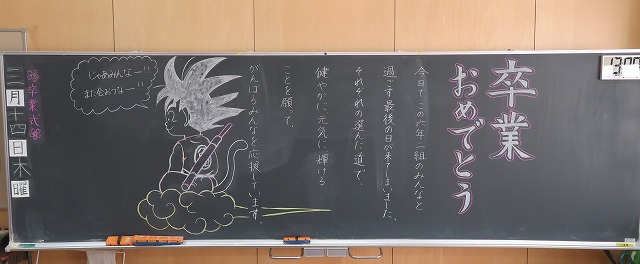 卒業
おめでとう
今日でこの六年一組のみんなと
過ごす最後の日が来てしまいました。
それぞれの選んだ道で、
健やかに元気に輝ける
ことを願って、
がんばるみんなを応援しています。
じゃあみんなー!!
また会おうなー!!
卒業式
三月十四日木曜